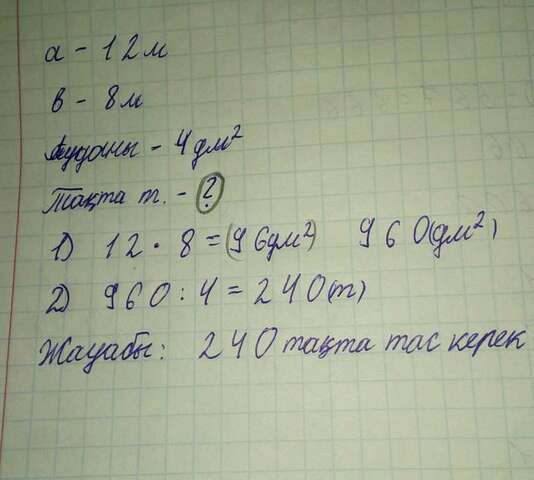 а - 12 м
в - 8 м
Ауданы - 4 дм²
Тақта т. - ?
1) 12 · 8 = (96 дм²) 960 (дм²)
2) 960 : 4 = 240 (т)
Жауабы: 240 тақта тас керек